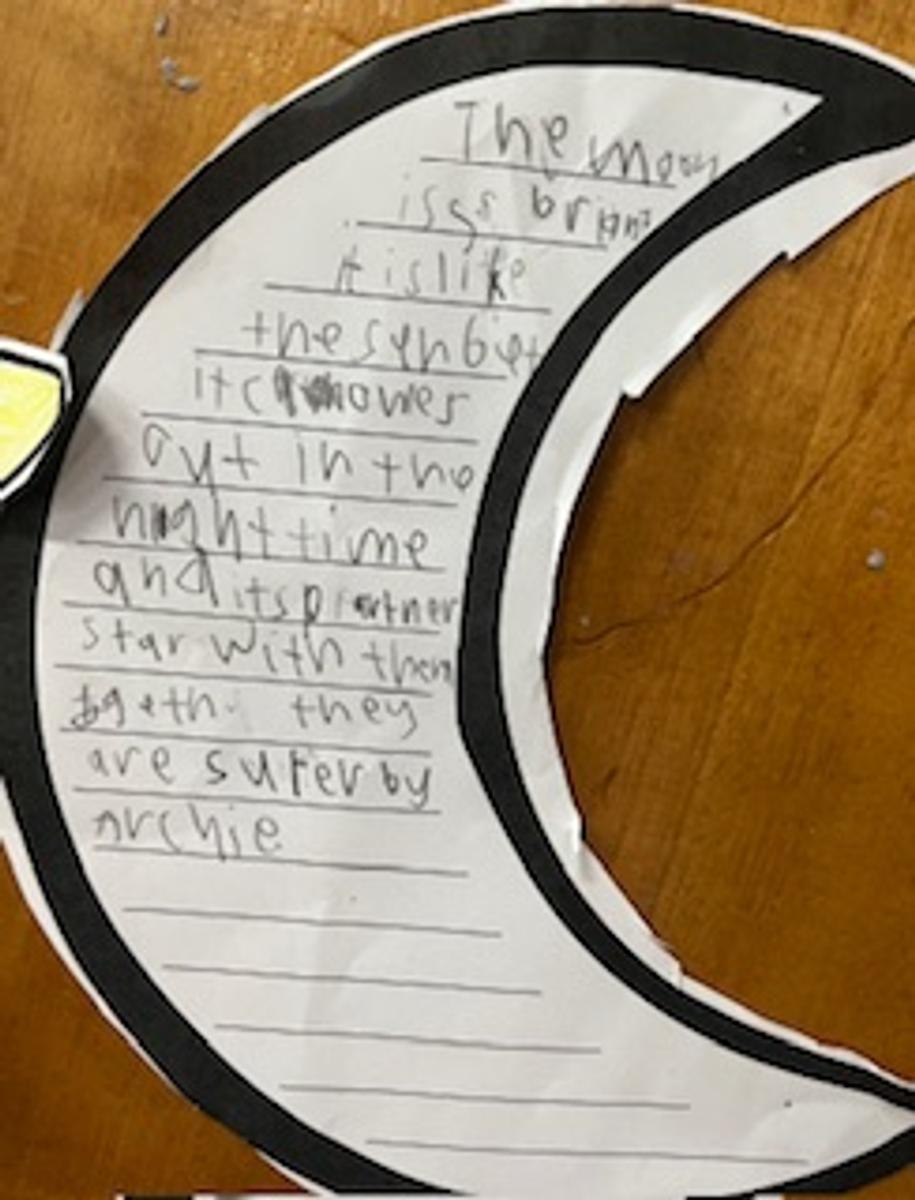 The moon
is
it is like
the sun
it
out in the
night time
and its partner
star with them
they
are super by
Archie